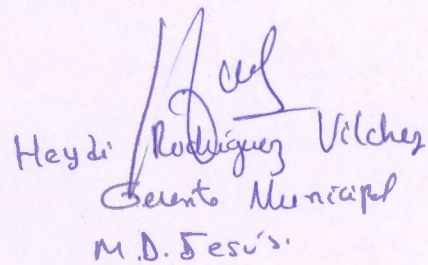 Heydi Rodríguez Vilchez
Gerente Municipal
M.D. Jesús.